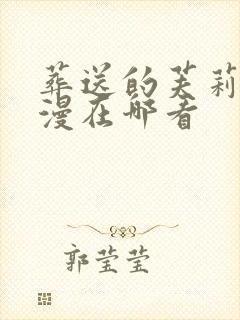 葬送的芙莉
漫在哪看
郭莹莹